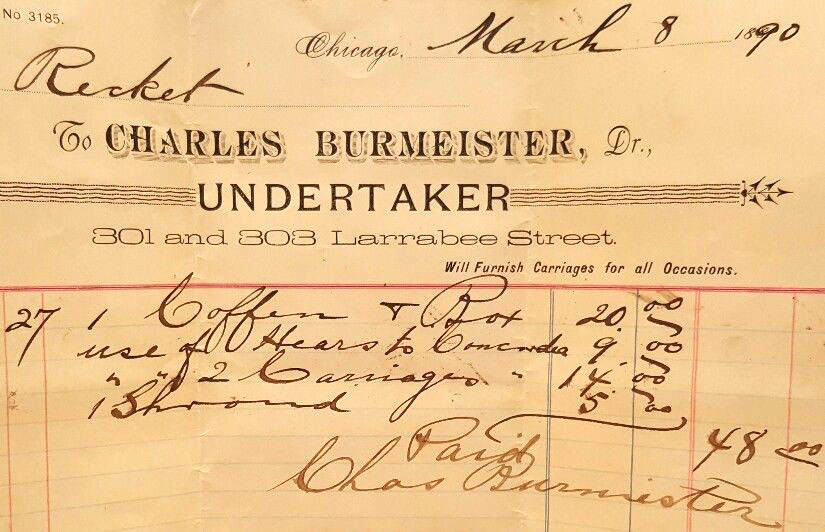 No 3185.
Chicago, March 8 1890
Recket
To CHARLES BURMEISTER, Dr.,
UNDERTAKER
301 and 303 Larrabee Street.
Will Furnish Carriages for all Occasions.
27 1 Coffen & Box 20 00
use of Hears to Concordia 9 00
" " 2 Carriages " 14 00
1 Shroud 5 00
48 00
Paid
Chas Burmeister